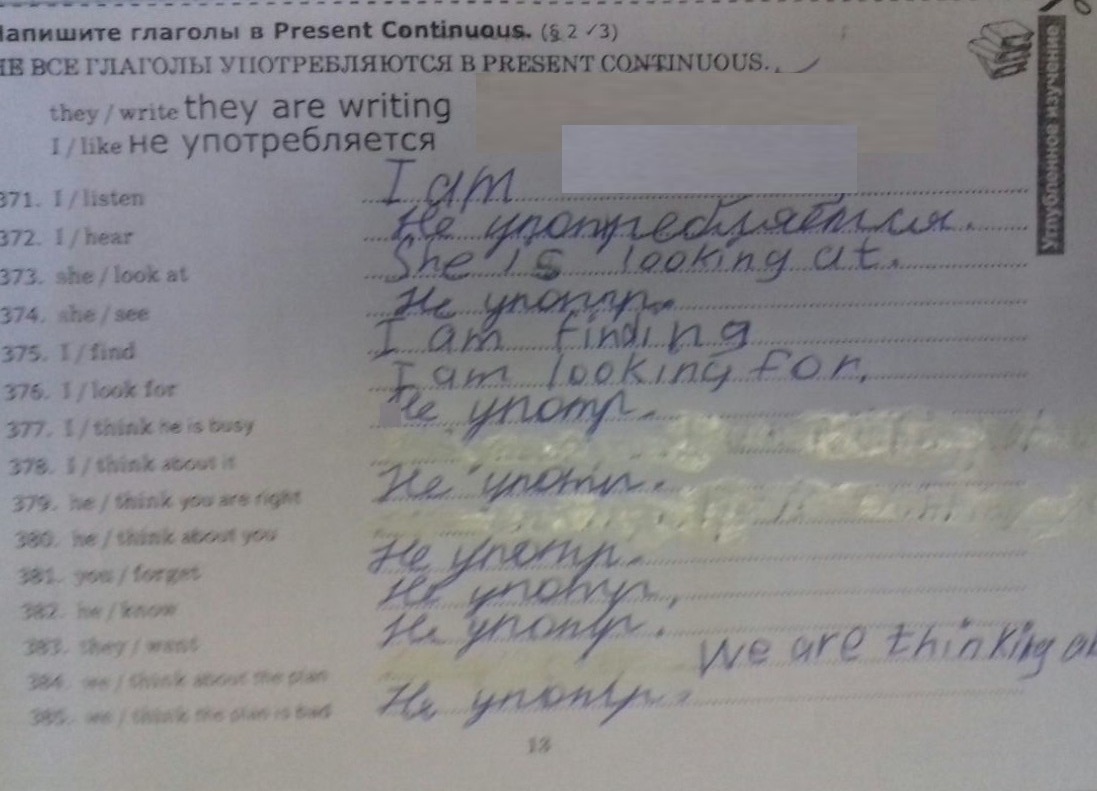 Напишите глаголы в Present Continuous. (§ 2 ✓3)
НЕ ВСЕ ГЛАГОЛЫ УПОТРЕБЛЯЮТСЯ В PRESENT CONTINUOUS.
they / write they are writing
I / like не употребляется
371. I / listen I am
372. I / hear Не употребляется.
373. she / look at She is looking at.
374. she / see Не употр.
375. I / find I am finding
376. I / look for I am looking for.
377. I / think he is busy Не употр.
378. I / think about it
379. he / think you are right Не употр.
380. he / think about you
381. you / forget Не употр.
382. he / know Не употр.
383. they / want Не употр.
384. we / think about the plan We are thinking
385. we / think the plan is bad Не употр.
Углубленное изучение
13